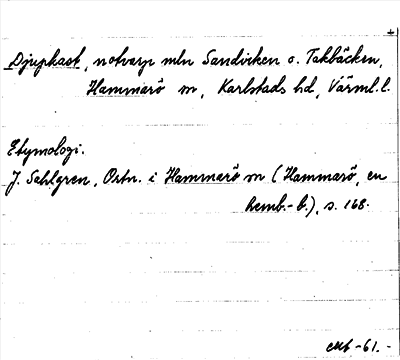 Djupkast, notvarp mln Sandviken o. Takbäcken,
Hammarö sn, Karlstads hd, Värml.l.
Etymologi.
J. Sahlgren, Ortn. i Hammarö sn (Hammarö, en
hemb.-b.), s. 168.
-61.-